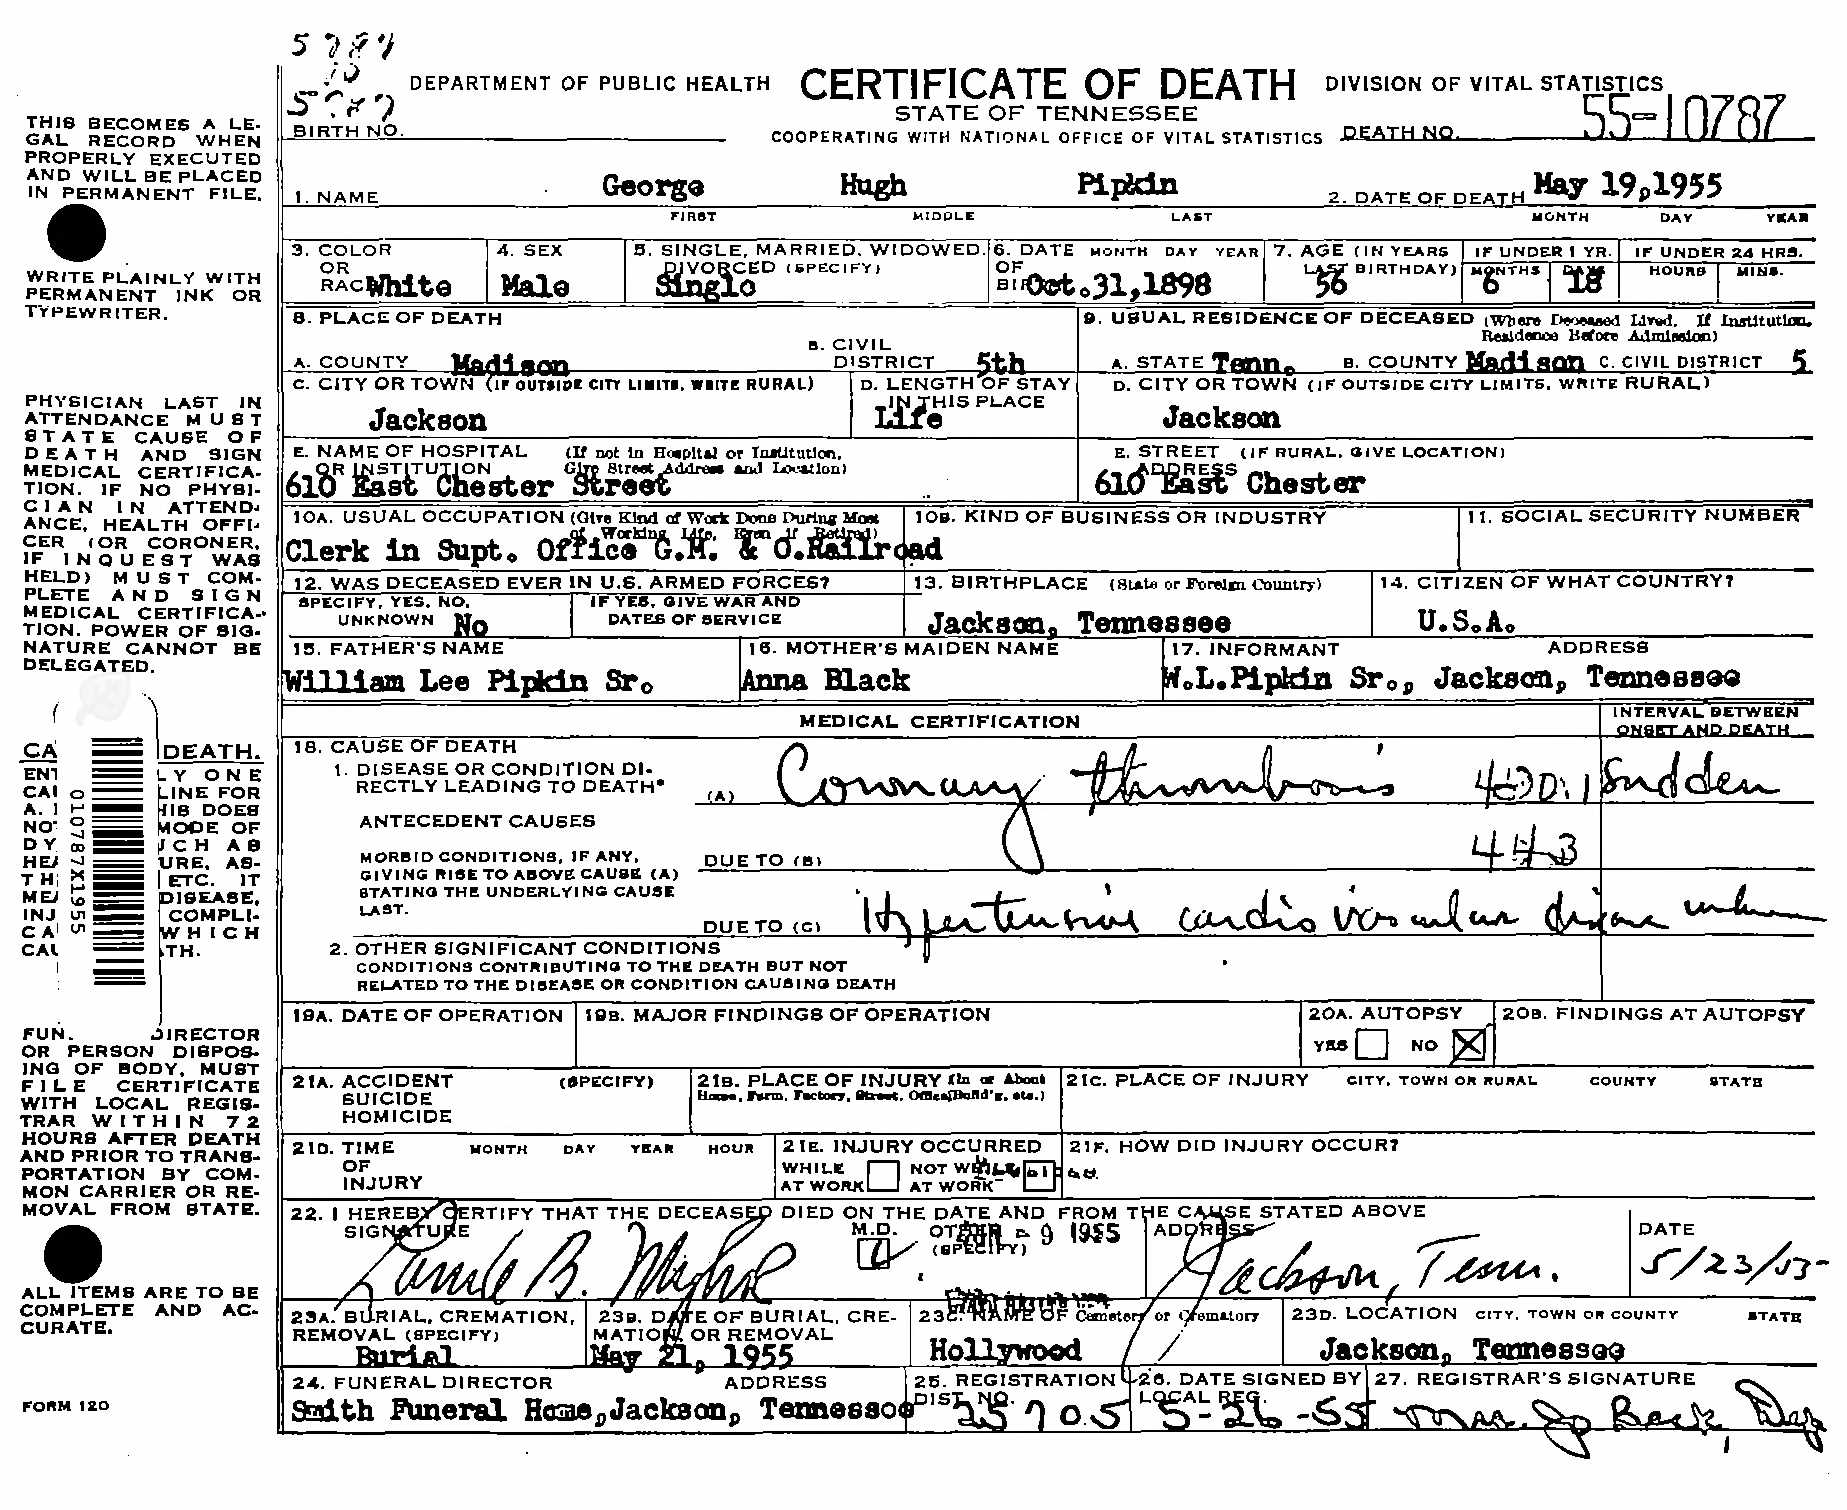 5787
10
5787
DEPARTMENT OF PUBLIC HEALTH CERTIFICATE OF DEATH DIVISION OF VITAL STATISTICS
STATE OF TENNESSEE
BIRTH NO. COOPERATING WITH NATIONAL OFFICE OF VITAL STATISTICS DEATH NO. 55-10787
THIS BECOMES A LE-
GAL RECORD WHEN
PROPERLY EXECUTED
AND WILL BE PLACED
IN PERMANENT FILE.
WRITE PLAINLY WITH
PERMANENT INK OR
TYPEWRITER.
PHYSICIAN LAST IN
ATTENDANCE MUST
STATE CAUSE OF
DEATH AND SIGN
MEDICAL CERTIFICA-
TION. IF NO PHYSI-
CIAN IN ATTEND-
ANCE, HEALTH OFFI-
CER (OR CORONER,
IF INQUEST WAS
HELD) MUST COM-
PLETE AND SIGN
MEDICAL CERTIFICA-
TION. POWER OF SIG-
NATURE CANNOT BE
DELEGATED.
CA DEATH.
ENT LY ONE
CAU LINE FOR
A. HIS DOES
NOT MODE OF
DY UCH AS
HEA URE, AS-
TH ETC. IT
MEA DISEASE,
INJ COMPLI-
CA WHICH
CAU TH.
010787X1955
FUN. DIRECTOR
OR PERSON DISPOS-
ING OF BODY, MUST
FILE CERTIFICATE
WITH LOCAL REGIS-
TRAR WITHIN 72
HOURS AFTER DEATH
AND PRIOR TO TRANS-
PORTATION BY COM-
MON CARRIER OR RE-
MOVAL FROM STATE.
ALL ITEMS ARE TO BE
COMPLETE AND AC-
CURATE.
FORM 120
1. NAME George Hugh Pipkin 2. DATE OF DEATH May 19,1955
FIRST MIDDLE LAST MONTH DAY YEAR
3. COLOR OR RACE White
4. SEX Male
5. SINGLE, MARRIED, WIDOWED. DIVORCED (SPECIFY) Single
6. DATE OF BIRTH MONTH DAY YEAR Oct.31,1898
7. AGE (IN YEARS LAST BIRTHDAY) 56
IF UNDER 1 YR. MONTHS 6 DAYS 18
IF UNDER 24 HRS. HOURS MINS.
8. PLACE OF DEATH
A. COUNTY Madison B. CIVIL DISTRICT 5th
C. CITY OR TOWN (IF OUTSIDE CITY LIMITS, WRITE RURAL) Jackson
D. LENGTH OF STAY IN THIS PLACE Life
E. NAME OF HOSPITAL OR INSTITUTION (If not in Hospital or Institution, Give Street Address and Location)
610 East Chester Street
9. USUAL RESIDENCE OF DECEASED (Where Deceased Lived. If Institution, Residence Before Admission)
A. STATE Tenn. B. COUNTY Madison C. CIVIL DISTRICT 5
D. CITY OR TOWN (IF OUTSIDE CITY LIMITS, WRITE RURAL) Jackson
E. STREET ADDRESS (IF RURAL, GIVE LOCATION)
610 East Chester
10A. USUAL OCCUPATION (Give Kind of Work Done During Most of Working Life, Even if Retired)
Clerk in Supt. Office G.M. & O.Railroad
10B. KIND OF BUSINESS OR INDUSTRY
11. SOCIAL SECURITY NUMBER
12. WAS DECEASED EVER IN U.S. ARMED FORCES?
SPECIFY, YES, NO, UNKNOWN No
IF YES, GIVE WAR AND DATES OF SERVICE
13. BIRTHPLACE (State or Foreign Country)
Jackson, Tennessee
14. CITIZEN OF WHAT COUNTRY?
U.S.A.
15. FATHER'S NAME
William Lee Pipkin Sr.
16. MOTHER'S MAIDEN NAME
Anna Black
17. INFORMANT ADDRESS
W.L.Pipkin Sr., Jackson, Tennessee
MEDICAL CERTIFICATION
INTERVAL BETWEEN ONSET AND DEATH
18. CAUSE OF DEATH
1. DISEASE OR CONDITION DI-
RECTLY LEADING TO DEATH*
(A) Coronary thrombosis 420.1 Sudden
ANTECEDENT CAUSES
MORBID CONDITIONS, IF ANY,
GIVING RISE TO ABOVE CAUSE (A)
STATING THE UNDERLYING CAUSE
LAST.
DUE TO (B) 443
DUE TO (C) Hypertensive cardio vascular disease unknown
2. OTHER SIGNIFICANT CONDITIONS
CONDITIONS CONTRIBUTING TO THE DEATH BUT NOT
RELATED TO THE DISEASE OR CONDITION CAUSING DEATH
19A. DATE OF OPERATION 19B. MAJOR FINDINGS OF OPERATION 20A. AUTOPSY 20B. FINDINGS AT AUTOPSY
YES NO X
21A. ACCIDENT SUICIDE HOMICIDE (SPECIFY)
21B. PLACE OF INJURY (In or About Home, Farm, Factory, Street, Office Build'g, etc.)
21C. PLACE OF INJURY CITY, TOWN OR RURAL COUNTY STATE
21D. TIME OF INJURY MONTH DAY YEAR HOUR
21E. INJURY OCCURRED
WHILE AT WORK NOT WHILE AT WORK
21F. HOW DID INJURY OCCUR?
22. I HEREBY CERTIFY THAT THE DECEASED DIED ON THE DATE AND FROM THE CAUSE STATED ABOVE
SIGNATURE M.D. OTHER (SPECIFY) JUN - 9 1955 ADDRESS Jackson, Tenn. DATE 5/23/55
23A. BURIAL, CREMATION, REMOVAL (SPECIFY)
Burial
23B. DATE OF BURIAL, CRE-
MATION, OR REMOVAL
May 21, 1955
23C. NAME OF Cemetery or Crematory
Hollywood
23D. LOCATION CITY, TOWN OR COUNTY STATE
Jackson, Tennessee
24. FUNERAL DIRECTOR ADDRESS
Smith Funeral Home,Jackson, Tennessee
25. REGISTRATION DIST. NO. 25705
26. DATE SIGNED BY LOCAL REG. 5-26-55
27. REGISTRAR'S SIGNATURE
Mrs. Jo Beck, Dep